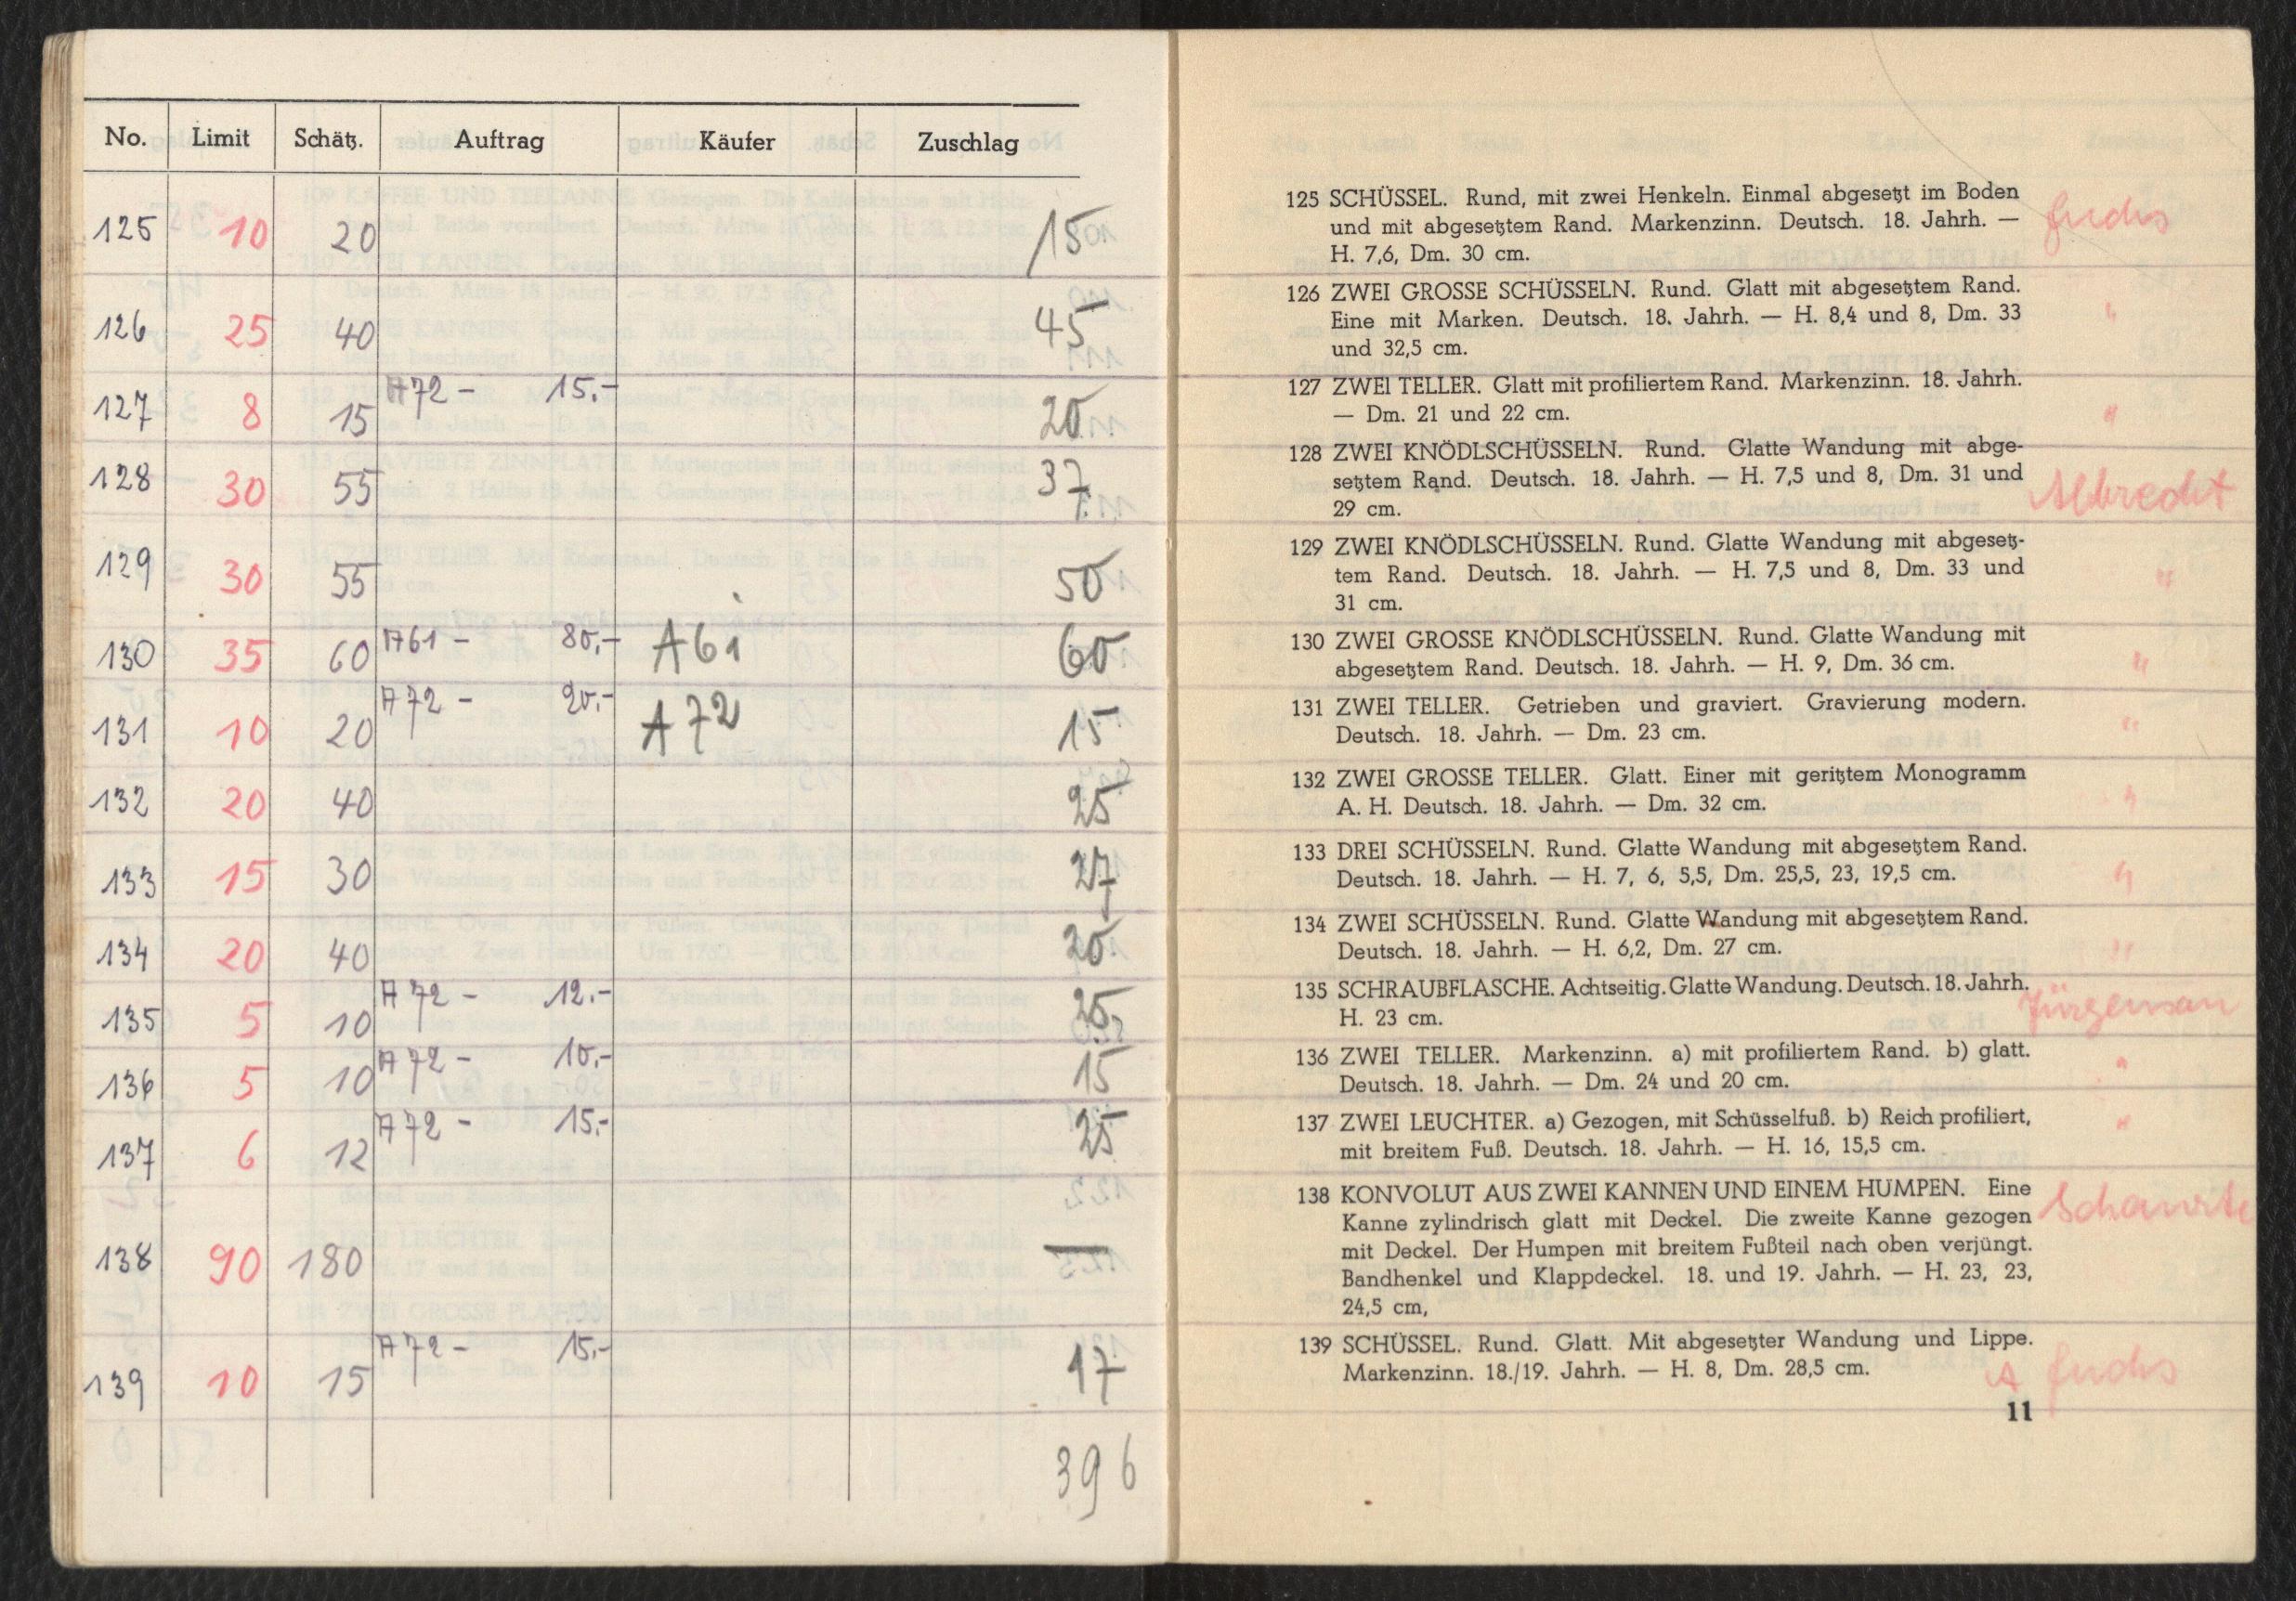 No. Limit Schätz. Auftrag Käufer Zuschlag
125 10 20 15
126 25 40 45
127 8 15 A72 - 15.- 20
128 30 55 37
129 30 55 50
130 35 60 A61 - 80.- A61 60
131 10 20 A72 - 20.- A72 15
132 20 40 25
133 15 30 27
134 20 40 20
135 5 10 A72 - 12.- 25
136 5 10 A72 - 10.- 15
137 6 12 A72 - 15.- 25
138 90 180 —
139 10 15 A72 - 15.- 17
396
125 SCHÜSSEL. Rund, mit zwei Henkeln. Einmal abgesetzt im Boden
und mit abgesetztem Rand. Markenzinn. Deutsch. 18. Jahrh. — fuchs
H. 7,6, Dm. 30 cm.
126 ZWEI GROSSE SCHÜSSELN. Rund. Glatt mit abgesetztem Rand.
Eine mit Marken. Deutsch. 18. Jahrh. — H. 8,4 und 8, Dm. 33 "
und 32,5 cm.
127 ZWEI TELLER. Glatt mit profiliertem Rand. Markenzinn. 18. Jahrh.
— Dm. 21 und 22 cm. "
128 ZWEI KNÖDLSCHÜSSELN. Rund. Glatte Wandung mit abge-
setztem Rand. Deutsch. 18. Jahrh. — H. 7,5 und 8, Dm. 31 und Albrecht
29 cm.
129 ZWEI KNÖDLSCHÜSSELN. Rund. Glatte Wandung mit abgesetz-
tem Rand. Deutsch. 18. Jahrh. — H. 7,5 und 8, Dm. 33 und "
31 cm.
130 ZWEI GROSSE KNÖDLSCHÜSSELN. Rund. Glatte Wandung mit
abgesetztem Rand. Deutsch. 18. Jahrh. — H. 9, Dm. 36 cm. "
131 ZWEI TELLER. Getrieben und graviert. Gravierung modern.
Deutsch. 18. Jahrh. — Dm. 23 cm. "
132 ZWEI GROSSE TELLER. Glatt. Einer mit geritztem Monogramm
A. H. Deutsch. 18. Jahrh. — Dm. 32 cm. "
133 DREI SCHÜSSELN. Rund. Glatte Wandung mit abgesetztem Rand.
Deutsch. 18. Jahrh. — H. 7, 6, 5,5, Dm. 25,5, 23, 19,5 cm. "
134 ZWEI SCHÜSSELN. Rund. Glatte Wandung mit abgesetztem Rand.
Deutsch. 18. Jahrh. — H. 6,2, Dm. 27 cm. "
135 SCHRAUBFLASCHE. Achtseitig. Glatte Wandung. Deutsch. 18. Jahrh.
H. 23 cm.
136 ZWEI TELLER. Markenzinn. a) mit profiliertem Rand. b) glatt. "
Deutsch. 18. Jahrh. — Dm. 24 und 20 cm.
137 ZWEI LEUCHTER. a) Gezogen, mit Schüsselfuß. b) Reich profiliert, "
mit breitem Fuß. Deutsch. 18. Jahrh. — H. 16, 15,5 cm.
138 KONVOLUT AUS ZWEI KANNEN UND EINEM HUMPEN. Eine
Kanne zylindrisch glatt mit Deckel. Die zweite Kanne gezogen
mit Deckel. Der Humpen mit breitem Fußteil nach oben verjüngt.
Bandhenkel und Klappdeckel. 18. und 19. Jahrh. — H. 23, 23,
24,5 cm,
139 SCHÜSSEL. Rund. Glatt. Mit abgesetzter Wandung und Lippe.
Markenzinn. 18./19. Jahrh. — H. 8, Dm. 28,5 cm. A fuchs
11